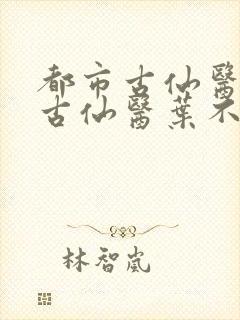 都市古仙醫
古仙醫葉不
林智嵐